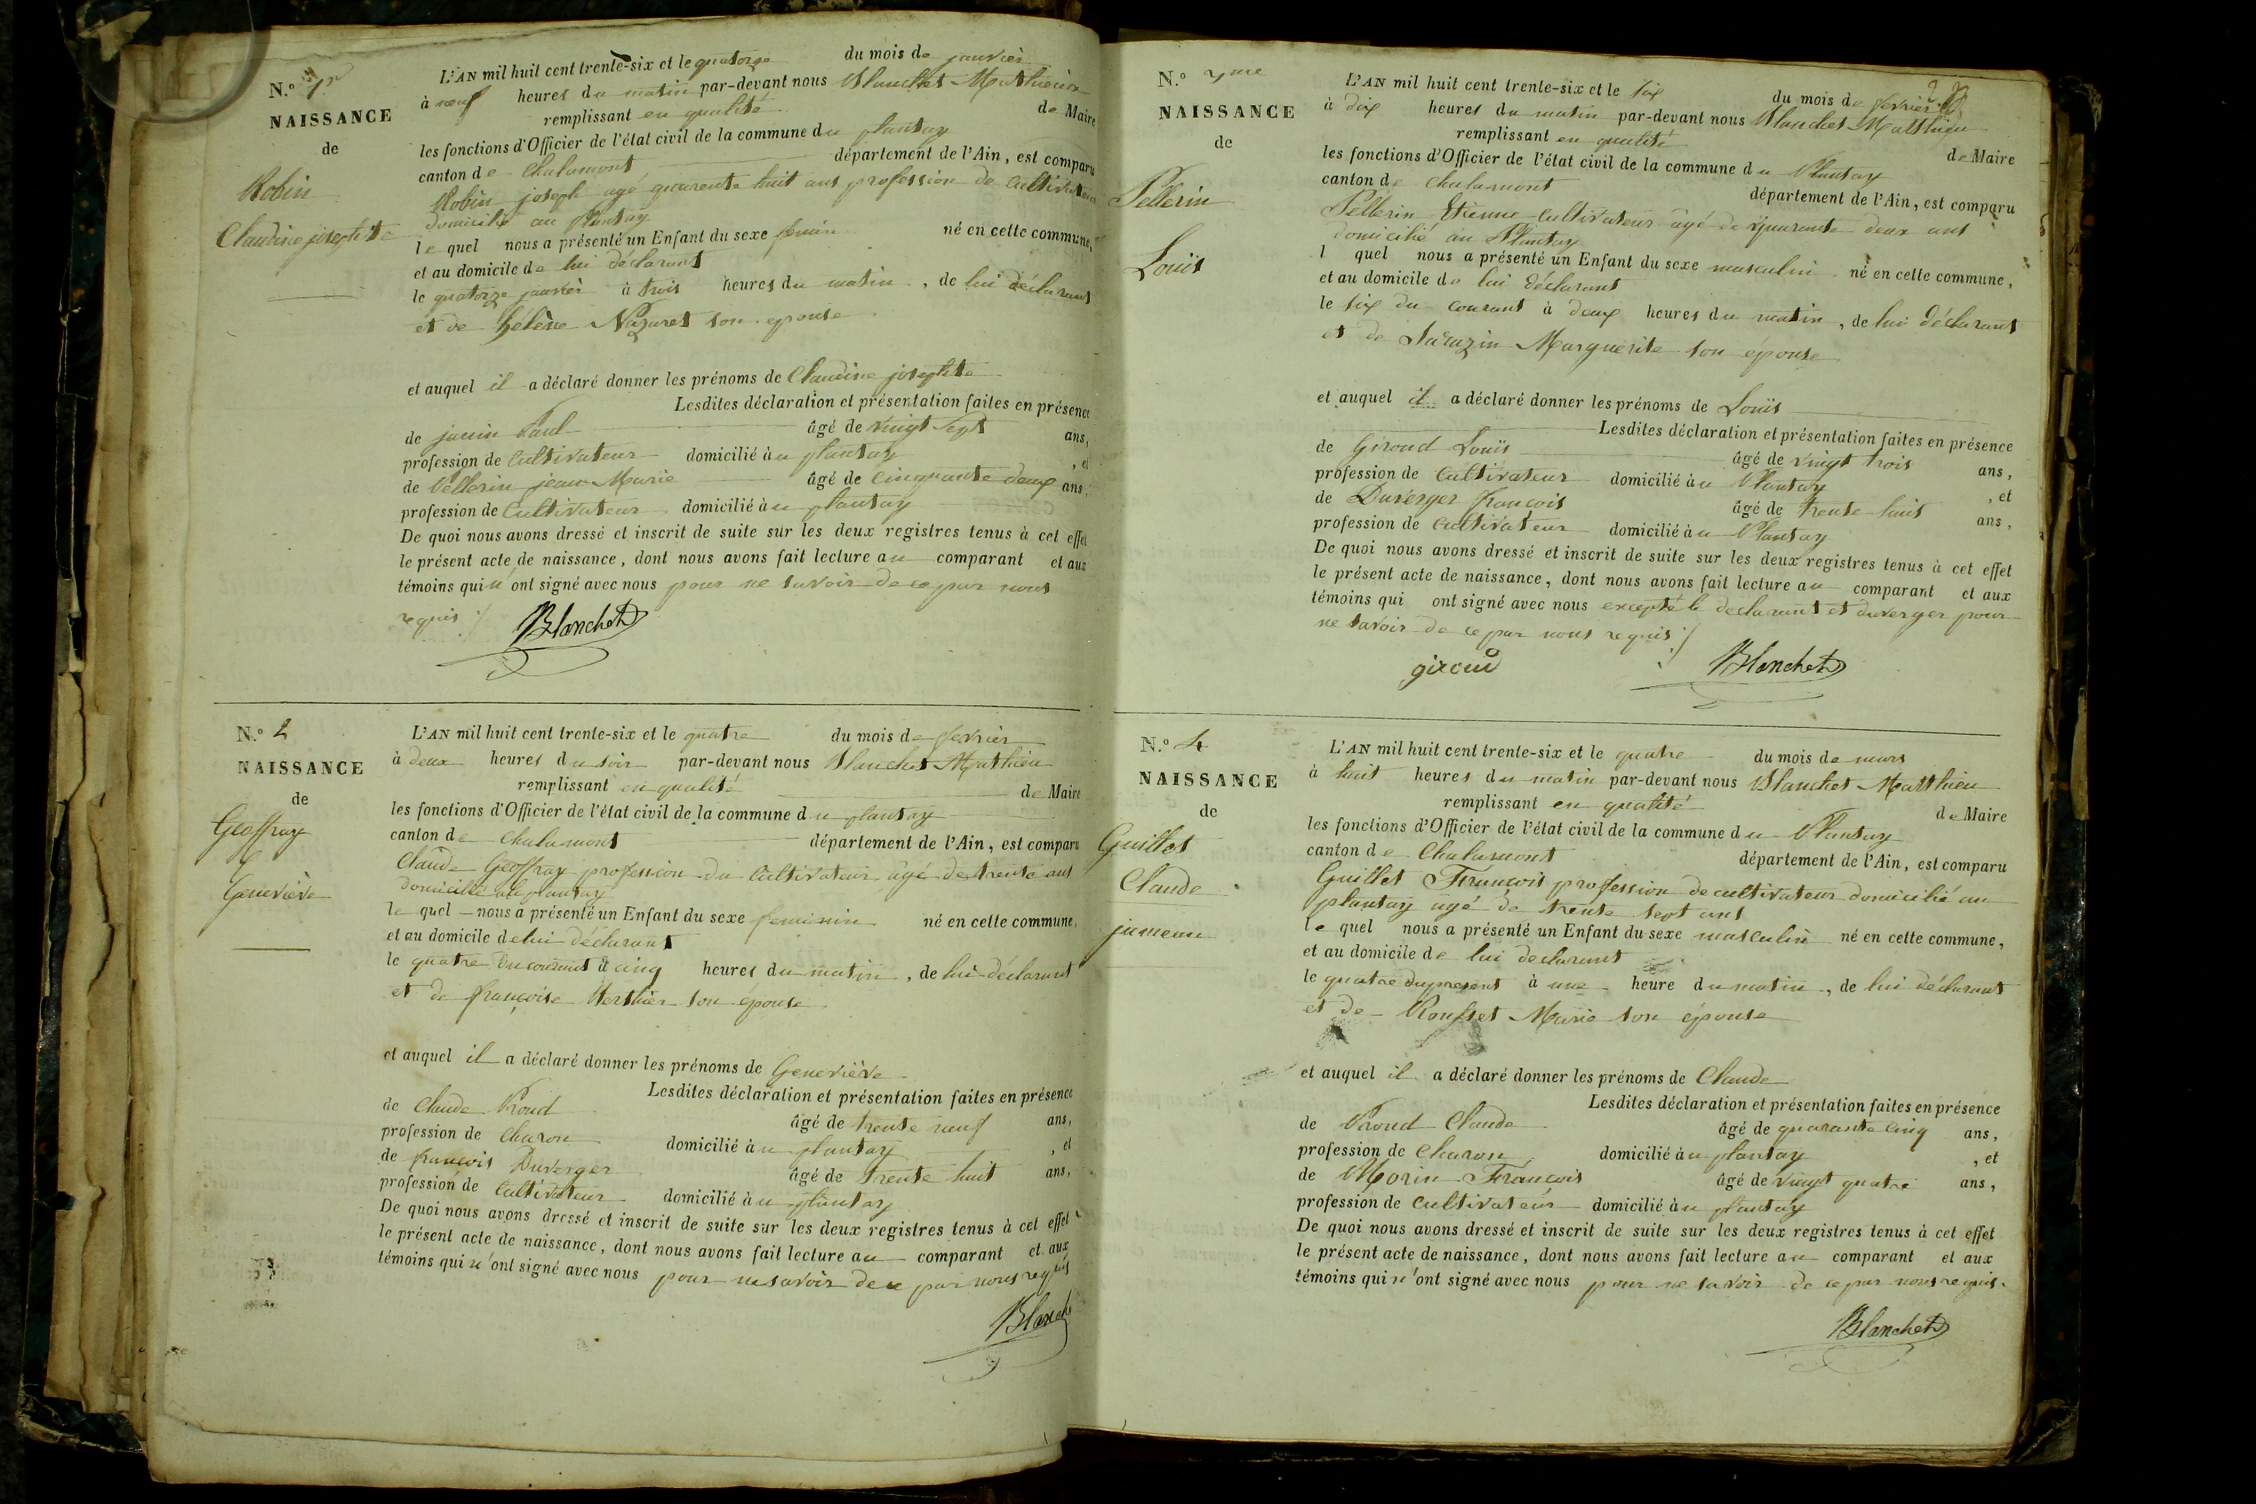 N.o 1r
NAISSANCE
de
Robin
Claudine josephte
L'AN mil huit cent trente-six et le quatorze du mois de janvier
à neuf heures du matin par-devant nous Blanchet Mathieu
remplissant en qualité de Maire
les fonctions d'Officier de l'état civil de la commune du plantay
canton de Chalamont département de l'Ain, est comparu
Robin joseph agé quarente huit ans profession de cultivateur
domicilié au Plantay
le quel nous a présenté un Enfant du sexe né en cette commune,
et au domicile de lui déclarant
le quatorze janvier à trois heures du matin, de lui déclarant
et de hélène Nazaret son epouse
et auquel il a déclaré donner les prénoms de Claudine josephte
Lesdites déclaration et présentation faites en présence
de Paul âgé de vingt sept ans,
profession de cultivateur domicilié au plantay, et
de Pellerin jean Marie âgé de cinquante deux ans,
profession de cultivateur domicilié au plantay
De quoi nous avons dressé et inscrit de suite sur les deux registres tenus à cet effet
le présent acte de naissance, dont nous avons fait lecture au comparant et aux
témoins qui n'ont signé avec nous pour ne savoir de ce par nous
requis ./ Blanchet
N.o 2
NAISSANCE
de
Geoffray
Geneviève
L'AN mil huit cent trente-six et le quatre du mois de fevrier
à deux heures du soir par-devant nous Blanchet Mathieu
remplissant en qualité de Maire
les fonctions d'Officier de l'état civil de la commune du plantay
canton de Chalamont département de l'Ain, est comparu
Claude Geoffray profession du cultivateur âgé de trente ans
domicilié au plantay
le quel nous a présenté un Enfant du sexe feminin né en cette commune,
et au domicile de lui déclarant
le quatre du courant à cinq heures du matin, de lui déclarant
et de françoise Berthier son épouse
et auquel il a déclaré donner les prénoms de Geneviève
Lesdites déclaration et présentation faites en présence
de Claude Proud âgé de trente neuf ans,
profession de charon domicilié au plantay, et
de françois Duverger âgé de trente huit ans,
profession de cultivateur domicilié au plantay
De quoi nous avons dressé et inscrit de suite sur les deux registres tenus à cet effet
le présent acte de naissance, dont nous avons fait lecture au comparant et aux
témoins qui n'ont signé avec nous pour ne savoir de ce par nous requis
Blanchet
N.o 3me
NAISSANCE
de
Pellerin
Louis
L'AN mil huit cent trente-six et le six du mois de fevrier
à dix heures du matin par-devant nous Blanchet Matthieu
remplissant en qualité de Maire
les fonctions d'Officier de l'état civil de la commune du Plantay
canton de Chalamont département de l'Ain, est comparu
Pellerin Etienne cultivateur agé de quarante deux ans
domicilié au Plantay
l quel nous a présenté un Enfant du sexe masculin né en cette commune,
et au domicile de lui déclarant
le six du courant à deux heures du matin, de lui déclarant
et de Sarazin Marguerite son épouse
et auquel il a déclaré donner les prénoms de Louis
Lesdites déclaration et présentation faites en présence
de Giroud Louis âgé de vingt trois ans,
profession de cultivateur domicilié au Plantay, et
de Duverger françois âgé de trente huit ans,
profession de cultivateur domicilié au Plantay
De quoi nous avons dressé et inscrit de suite sur les deux registres tenus à cet effet
le présent acte de naissance, dont nous avons fait lecture au comparant et aux
témoins qui ont signé avec nous excepté le declarant et duverger pour
ne savoir de ce par nous requis ./
giroud Blanchet
N.o 4
NAISSANCE
de
Guillet
Claude
jumeau
L'AN mil huit cent trente-six et le quatre du mois de mars
à huit heures du matin par-devant nous Blanchet Matthieu
remplissant en qualité de Maire
les fonctions d'Officier de l'état civil de la commune du Plantay
canton de Chalamont département de l'Ain, est comparu
Guillet François profession de cultivateur domicilié au
plantay agé de trente sept ans
le quel nous a présenté un Enfant du sexe masculin né en cette commune,
et au domicile de lui declarant
le quatre du present à une heure du matin, de lui déclarant
et de Rousset Marie son épouse
et auquel il a déclaré donner les prénoms de Claude
Lesdites déclaration et présentation faites en présence
de Proud Claude âgé de quarante cinq ans,
profession de charon domicilié au plantay, et
de Morin François âgé de vingt quatre ans,
profession de cultivateur domicilié au plantay
De quoi nous avons dressé et inscrit de suite sur les deux registres tenus à cet effet
le présent acte de naissance, dont nous avons fait lecture au comparant et aux
témoins qui n'ont signé avec nous pour ne savoir de ce par nous requis.
Blanchet